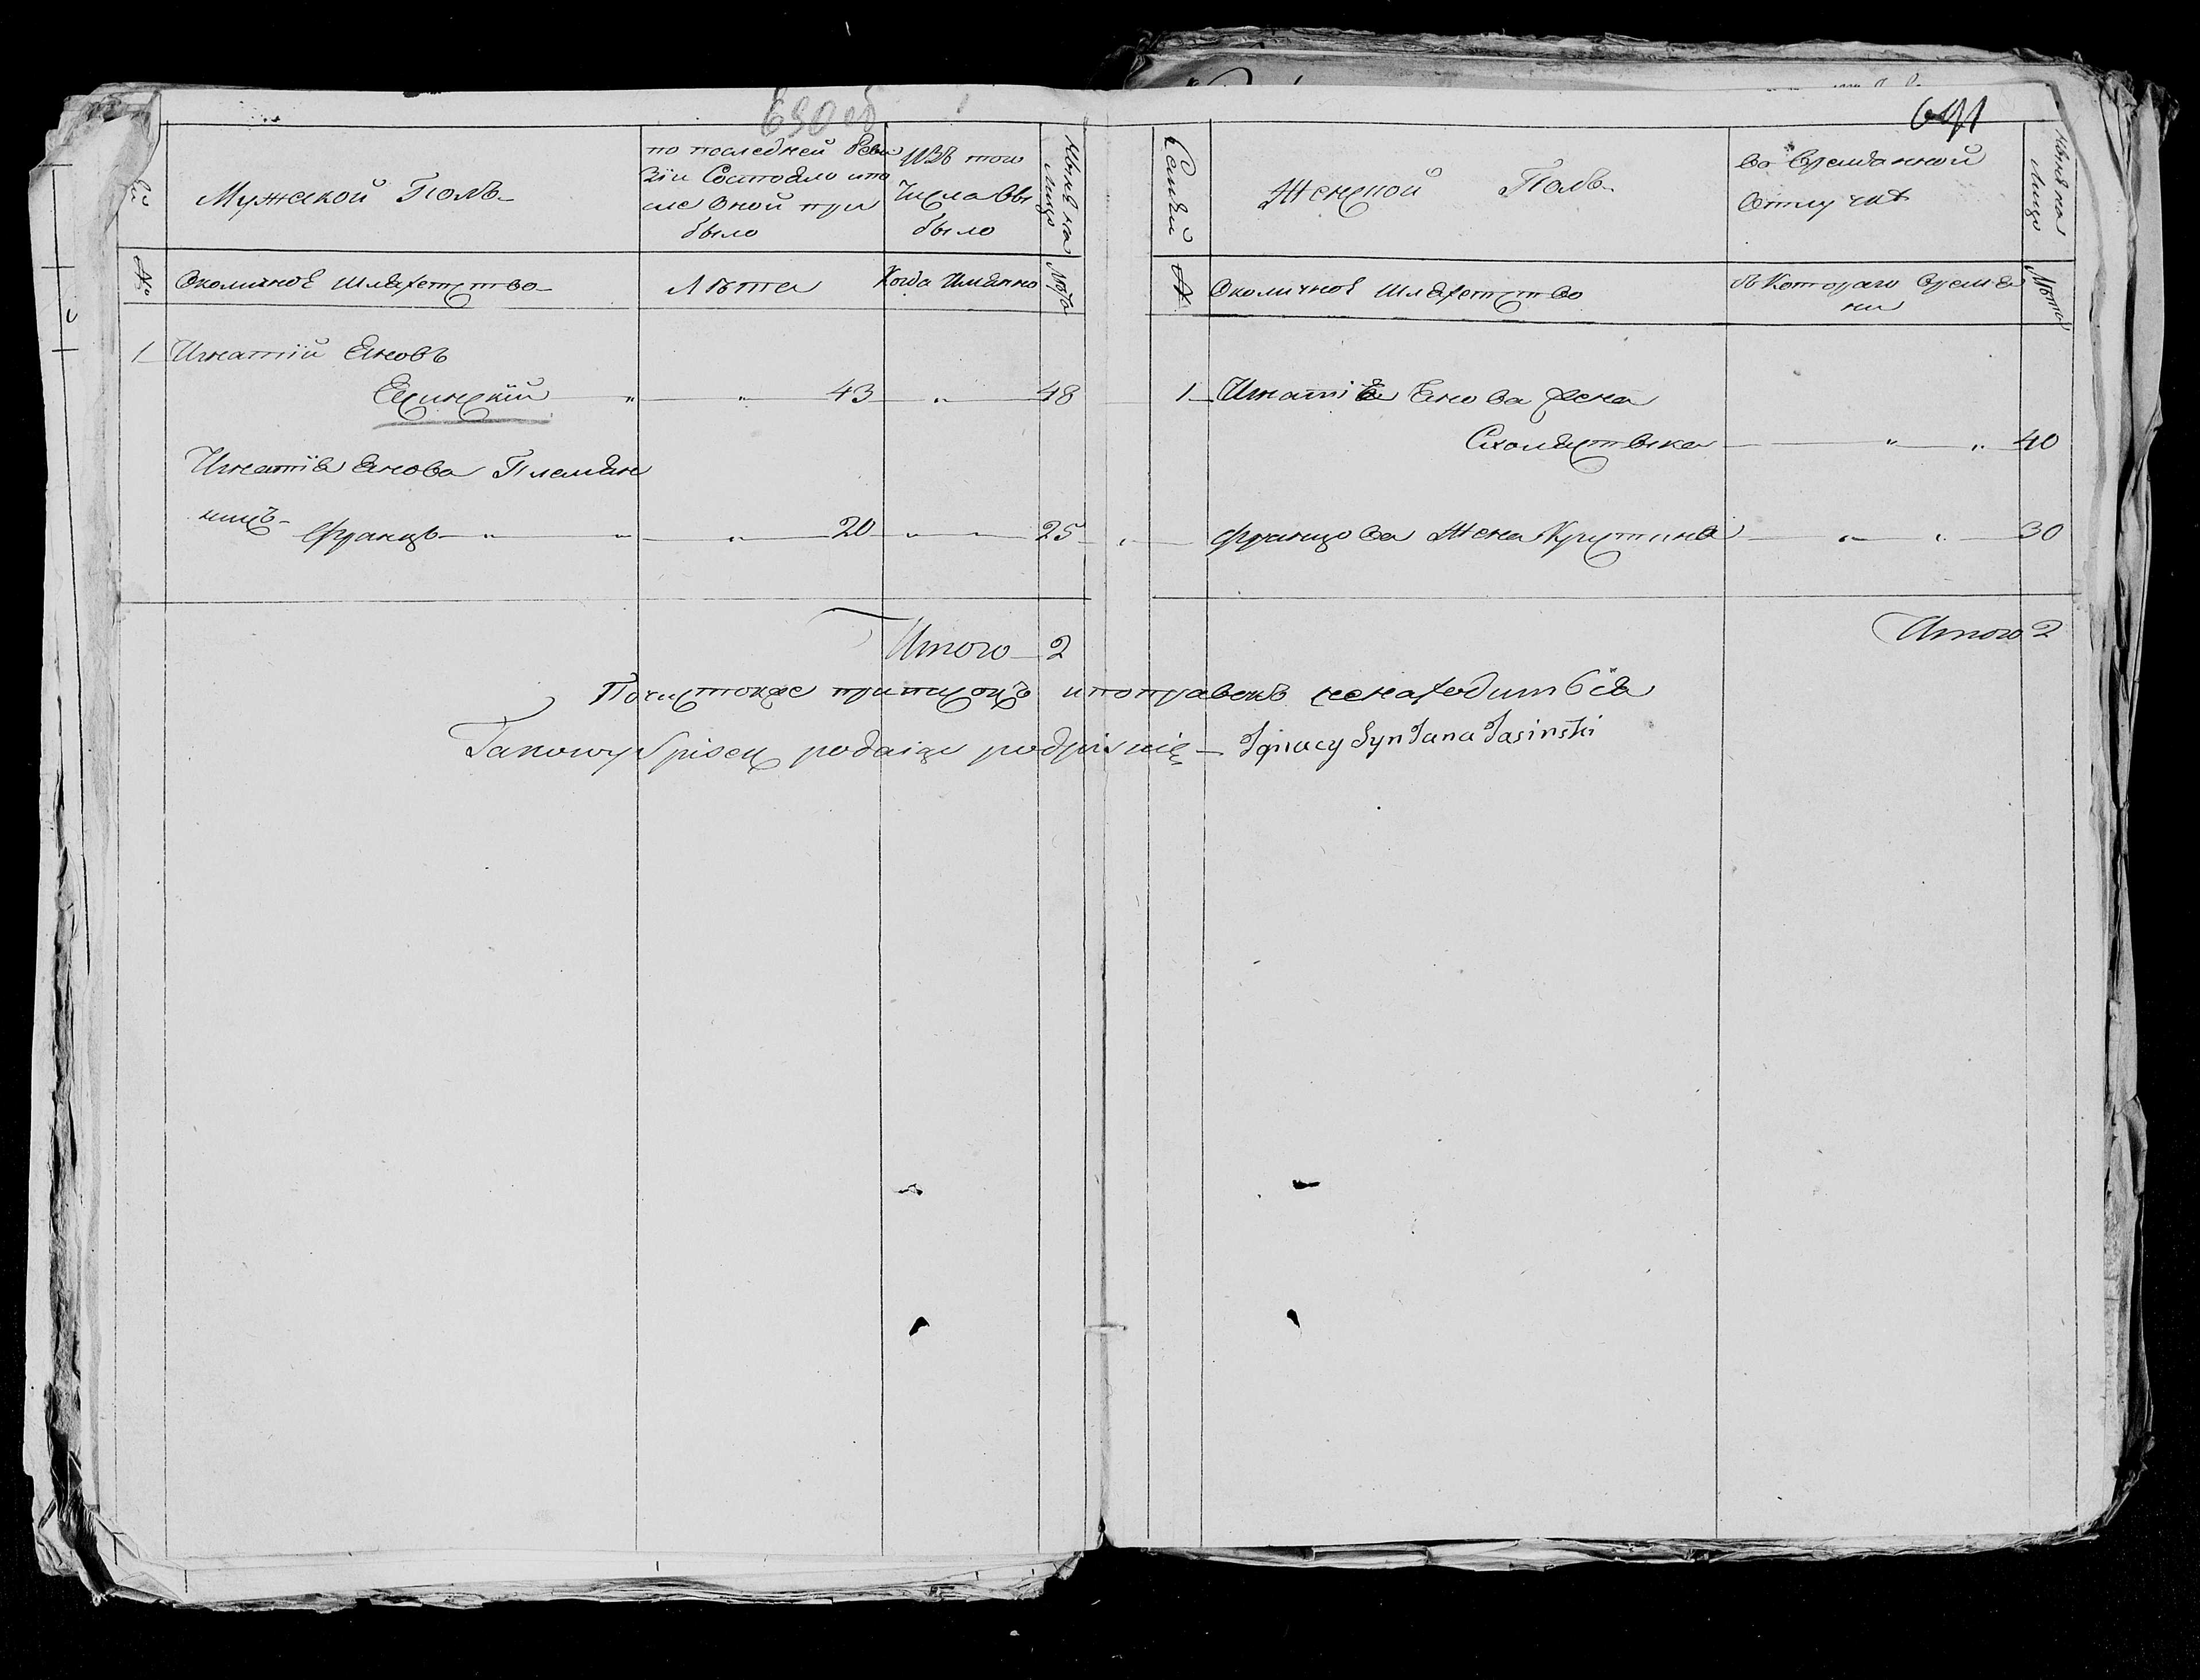 690 об
691
Мужеской Полъ
по последней Реви
зіи Состояло ипо
сле Оной при
было
Изъ того
Числа Вы
было
Нынѣ на
Лицо
№
Околичноѣ шляхетство
Лѣта
Когда Имянно
Лѣта
1 Игнатій Яновъ
Ясинскій " " 43 " 48
Игнатія Янова Племян
никъ
Францъ " " " 20 " " 25
Итого 2
Семьи
Женской Полъ
Во Времянной
Отлучкѣ
Нынѣ на
Лицо
№
Околичноѣ шляхетство
Съ Котораго Времѣ
ни
Лѣта
1 Игнатія Янова жена
Схолястыка " " 40
Францова Жена Крыстына " " 30
Итого 2
Почистокже приписокъ ипоправокъ ненаходитъся
Takowy Spisek podaiąc podpis uię Ignacy Syn Jana Jasinski